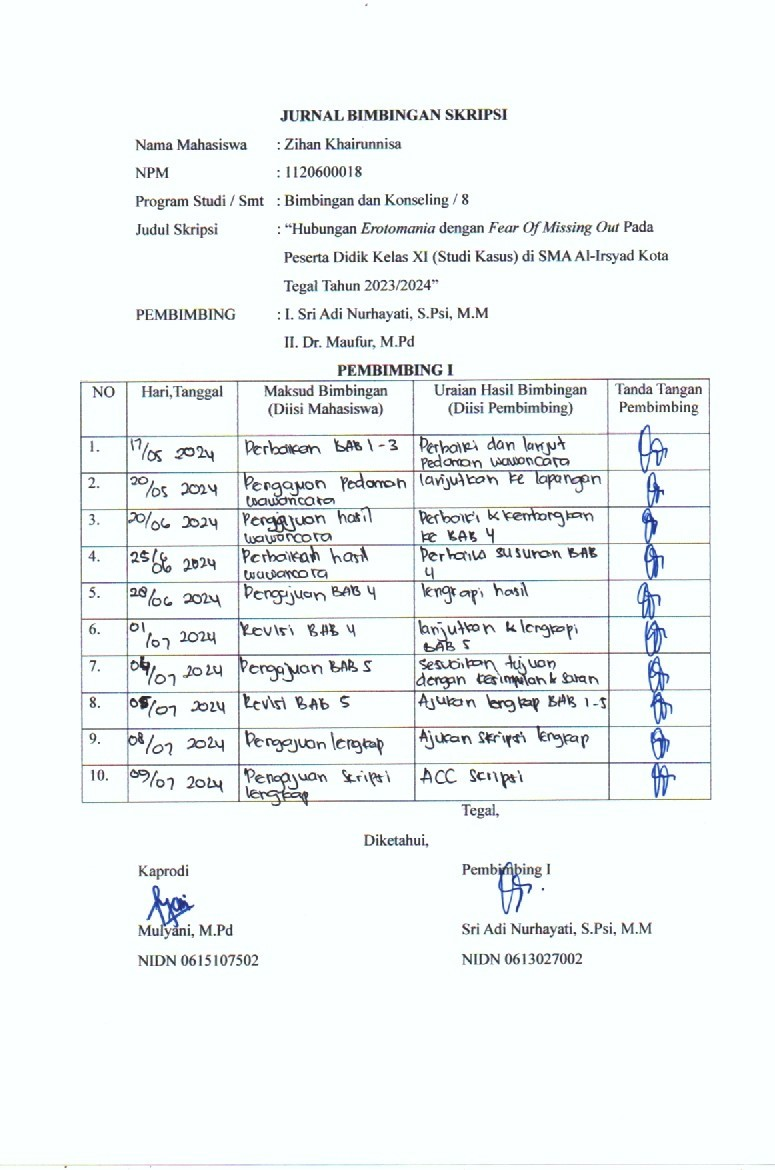 JURNAL BIMBINGAN SKRIPSI
Nama Mahasiswa : Zihan Khairunnisa
NPM : 1120600018
Program Studi / Smt : Bimbingan dan Konseling / 8
Judul Skripsi : “Hubungan Erotomania dengan Fear Of Missing Out Pada
Peserta Didik Kelas XI (Studi Kasus) di SMA Al-Irsyad Kota
Tegal Tahun 2023/2024”
PEMBIMBING : I. Sri Adi Nurhayati, S.Psi, M.M
II. Dr. Maufur, M.Pd
PEMBIMBING I
NO Hari,Tanggal Maksud Bimbingan Uraian Hasil Bimbingan Tanda Tangan
(Diisi Mahasiswa) (Diisi Pembimbing) Pembimbing
1. 17/05 2024 Perbaikan BAB 1-3 Perbaiki dan lanjut
pedoman wawancara
2. 20/05 2024 Pengajuan Pedoman lanjutkan ke lapangan
wawancara
3. 20/06 2024 Pengajuan hasil Perbaiki & kembangkan
wawancara ke BAB 4
4. 25/06 2024 Perbaikan hasil Perbaiki susunan BAB
wawancara 4
5. 28/06 2024 Pengajuan BAB 4 lengkapi hasil
6. 01/07 2024 Revisi BAB 4 lanjutkan & lengkapi
BAB 5
7. 04/07 2024 Pengajuan BAB 5 sesuaikan tujuan
dengan kesimpulan & saran
8. 05/07 2024 Revisi BAB 5 Ajukan lengkap BAB 1-5
9. 08/07 2024 Pengajuan lengkap Ajukan skripsi lengkap
10. 09/07 2024 Pengajuan Skripsi ACC Skripsi
lengkap
Tegal,
Diketahui,
Kaprodi Pembimbing I
Mulyani, M.Pd Sri Adi Nurhayati, S.Psi, M.M
NIDN 0615107502 NIDN 0613027002